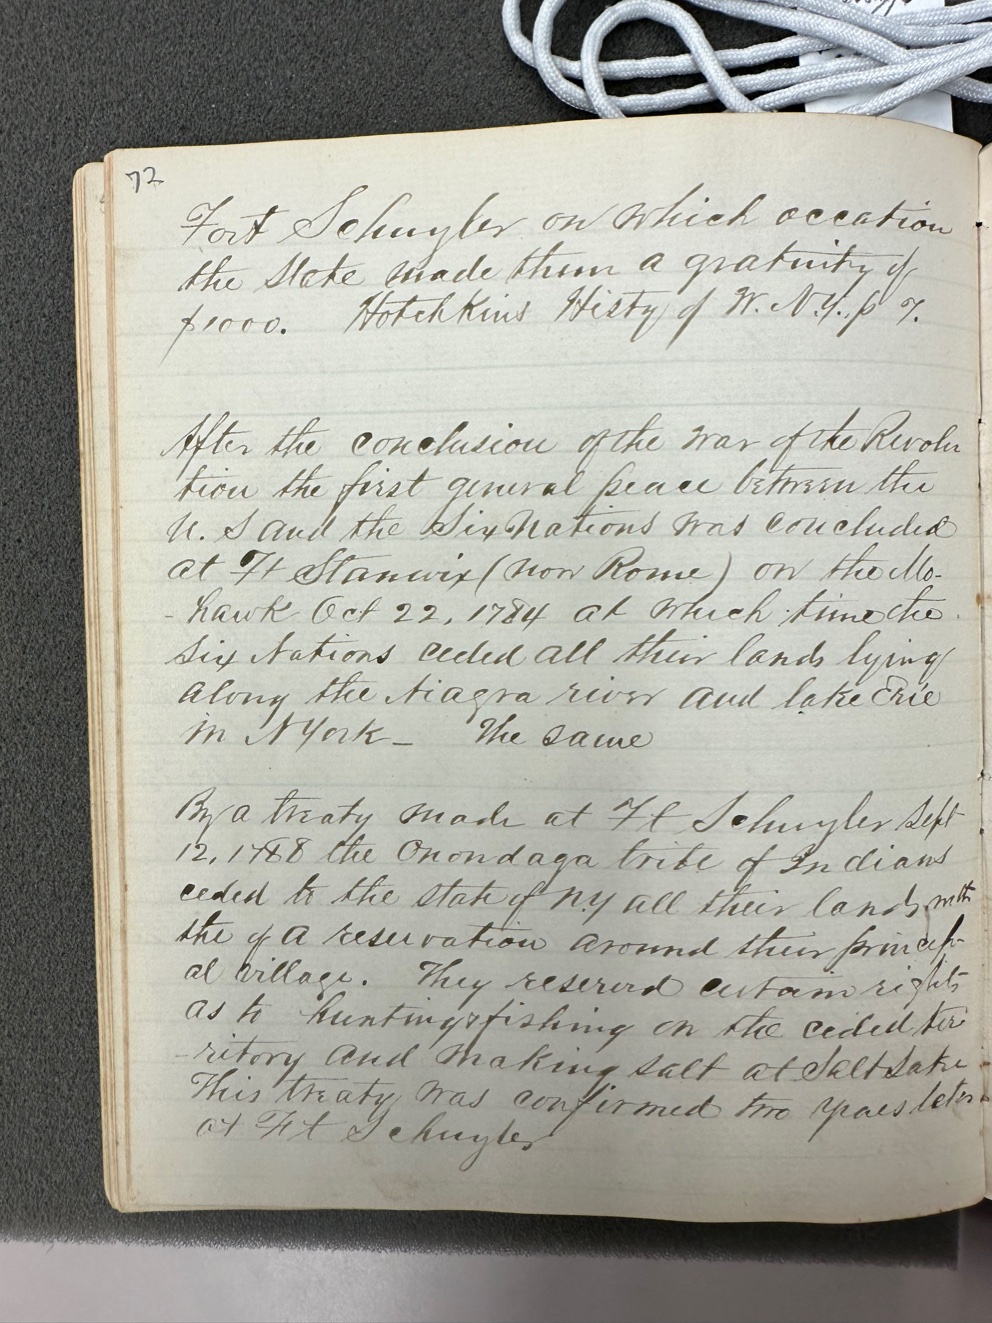 72
Fort Schuyler on which occation
the State made them a gratuity of
$1000. Hotchkins Histy of W. N.Y. p 7.
After the conclusion of the war of the Revolu
tion the first general peace between the
U. S and the Six Nations was concluded
at Ft Stanwix (now Rome) on the Mo-
-hawk Oct 22, 1784 at which time the
Six Nations ceded all their lands lying
along the Niagra river and lake Erie
in N York - The same
By a treaty made at Ft Schuyler Sept
12, 1788 the Onondaga tribe of Indians
ceded to the state of NY all their lands with
the of a reservation around their princip-
al village. They reserved certain rights
as to hunting & fishing on the ceded ter
-ritory and making salt at Salt Lake
This treaty was confirmed two years later
at Ft Schuyler